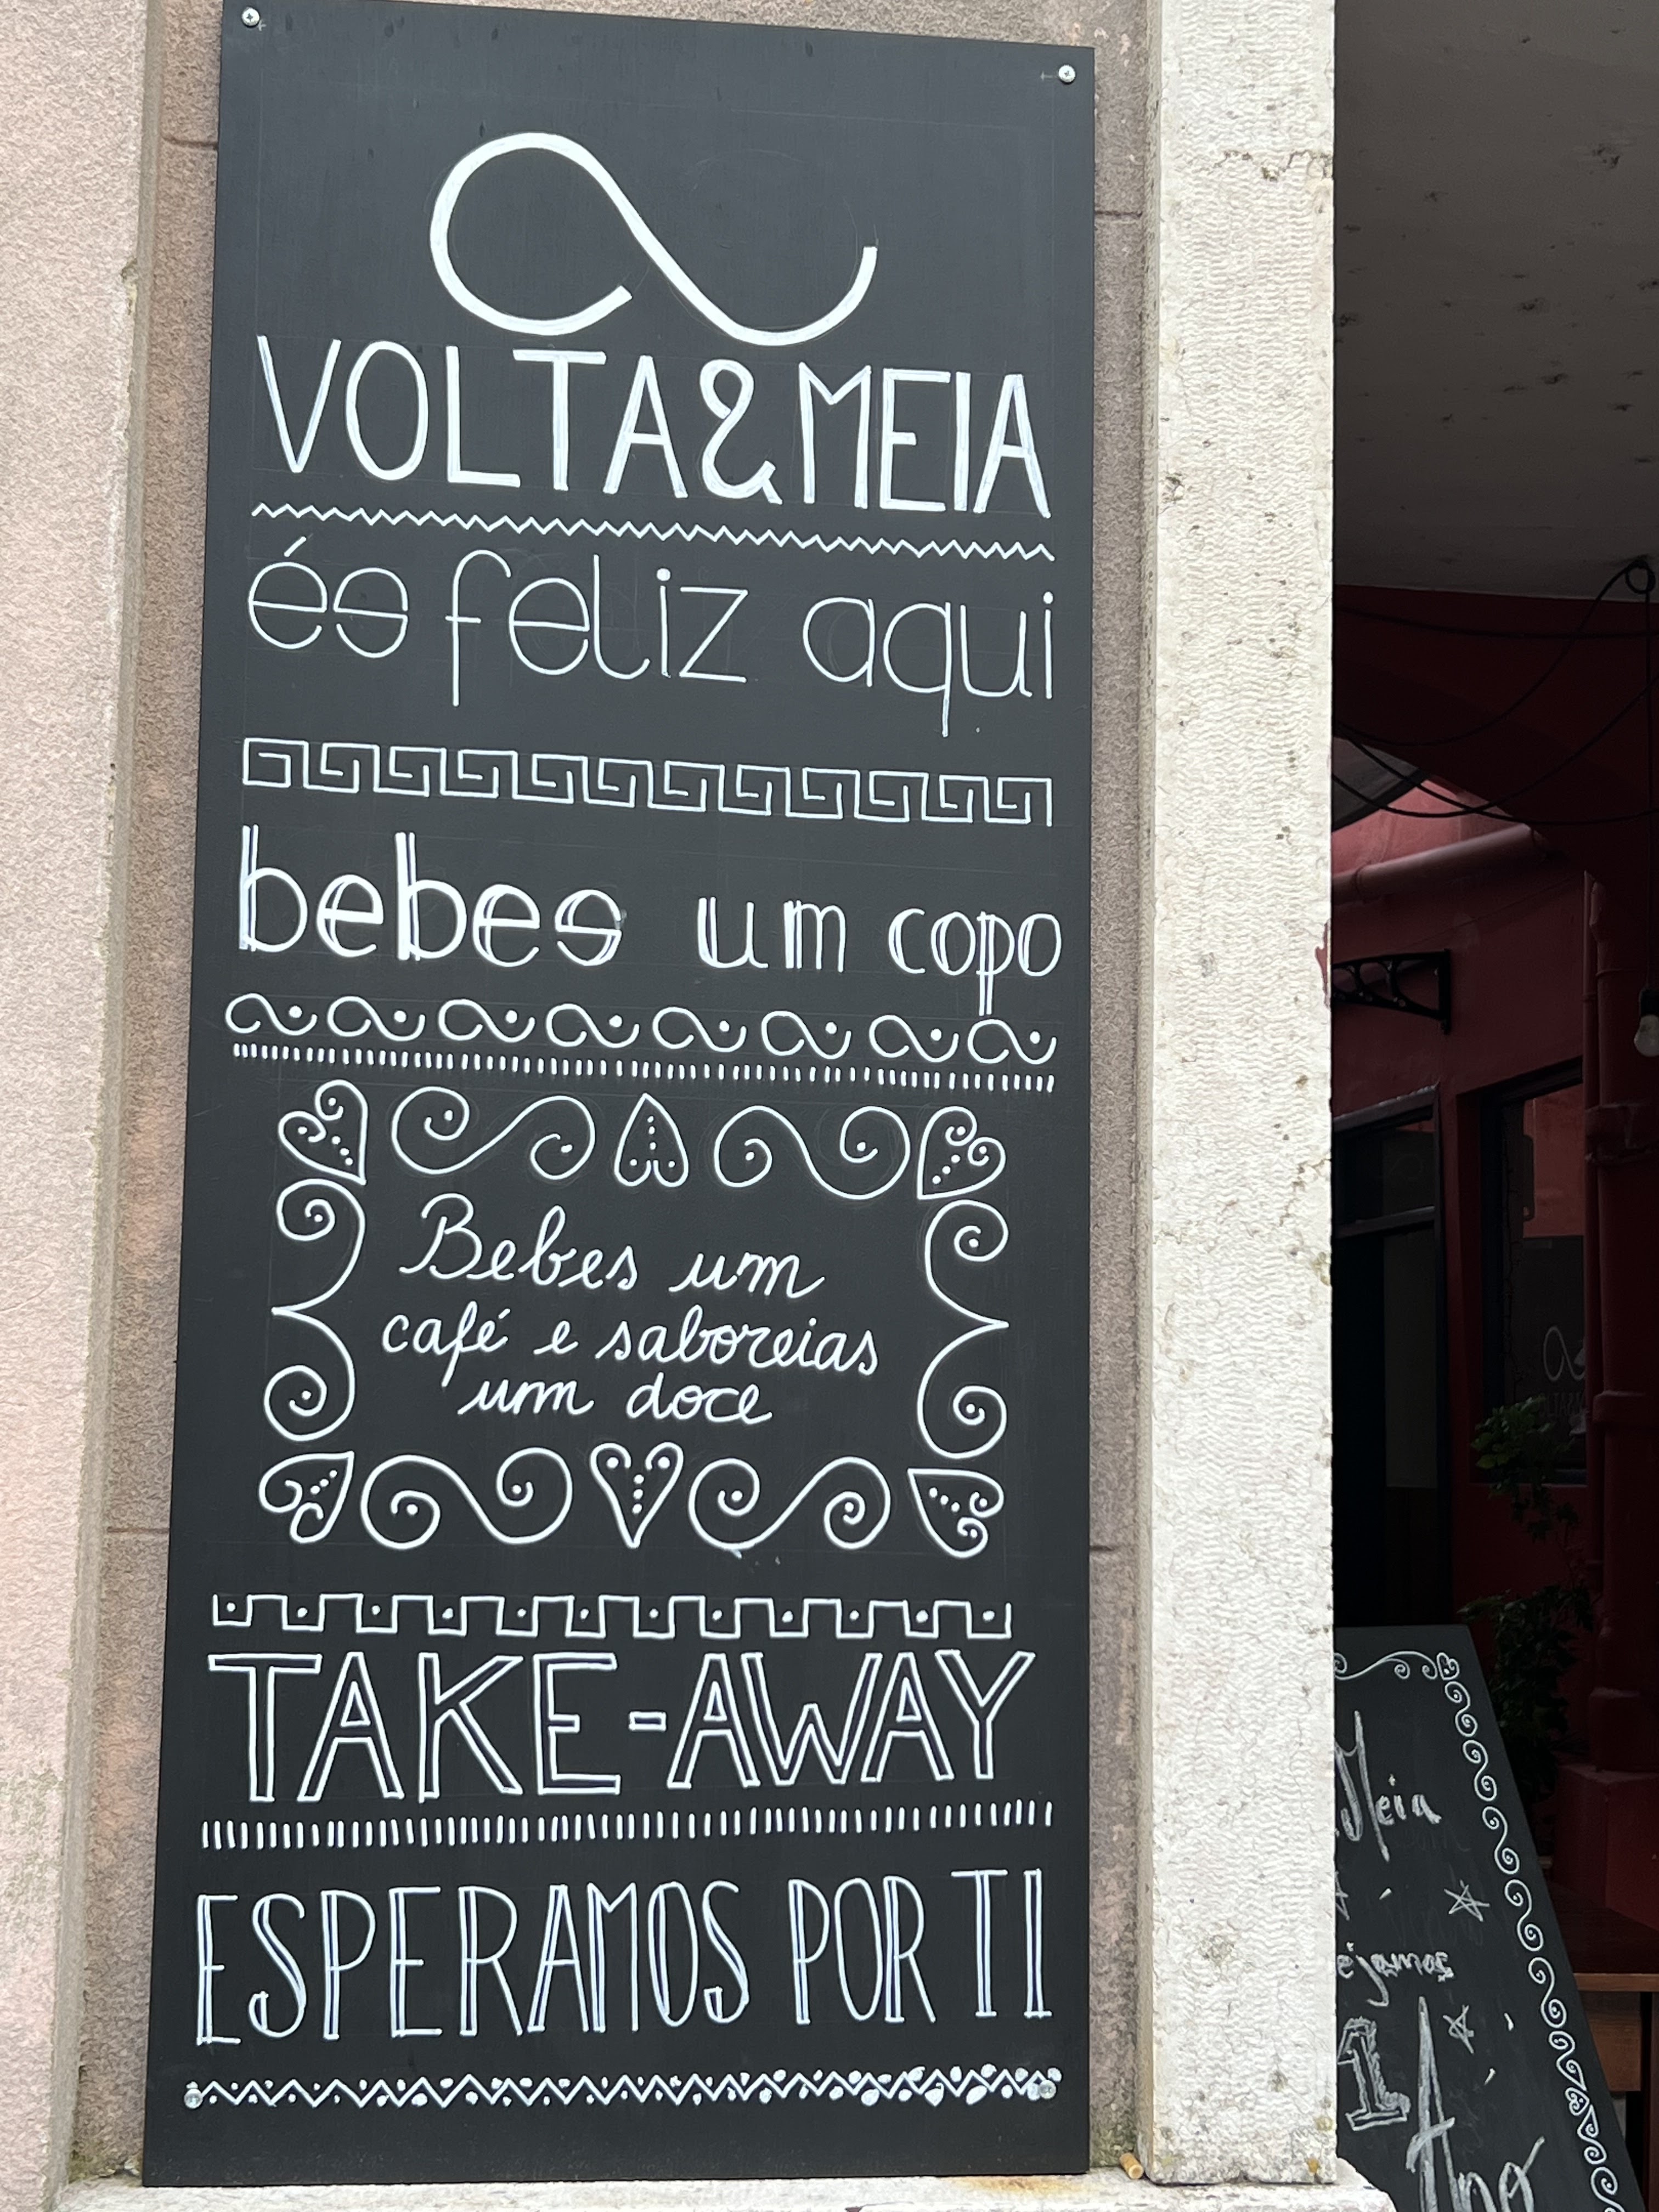 VOLTA&MEIA
és feliz aqui
bebes um copo
Bebes um
café e saboreias
um doce
TAKE-AWAY
ESPERAMOS POR TI
Meia
ejamos
1
Ano